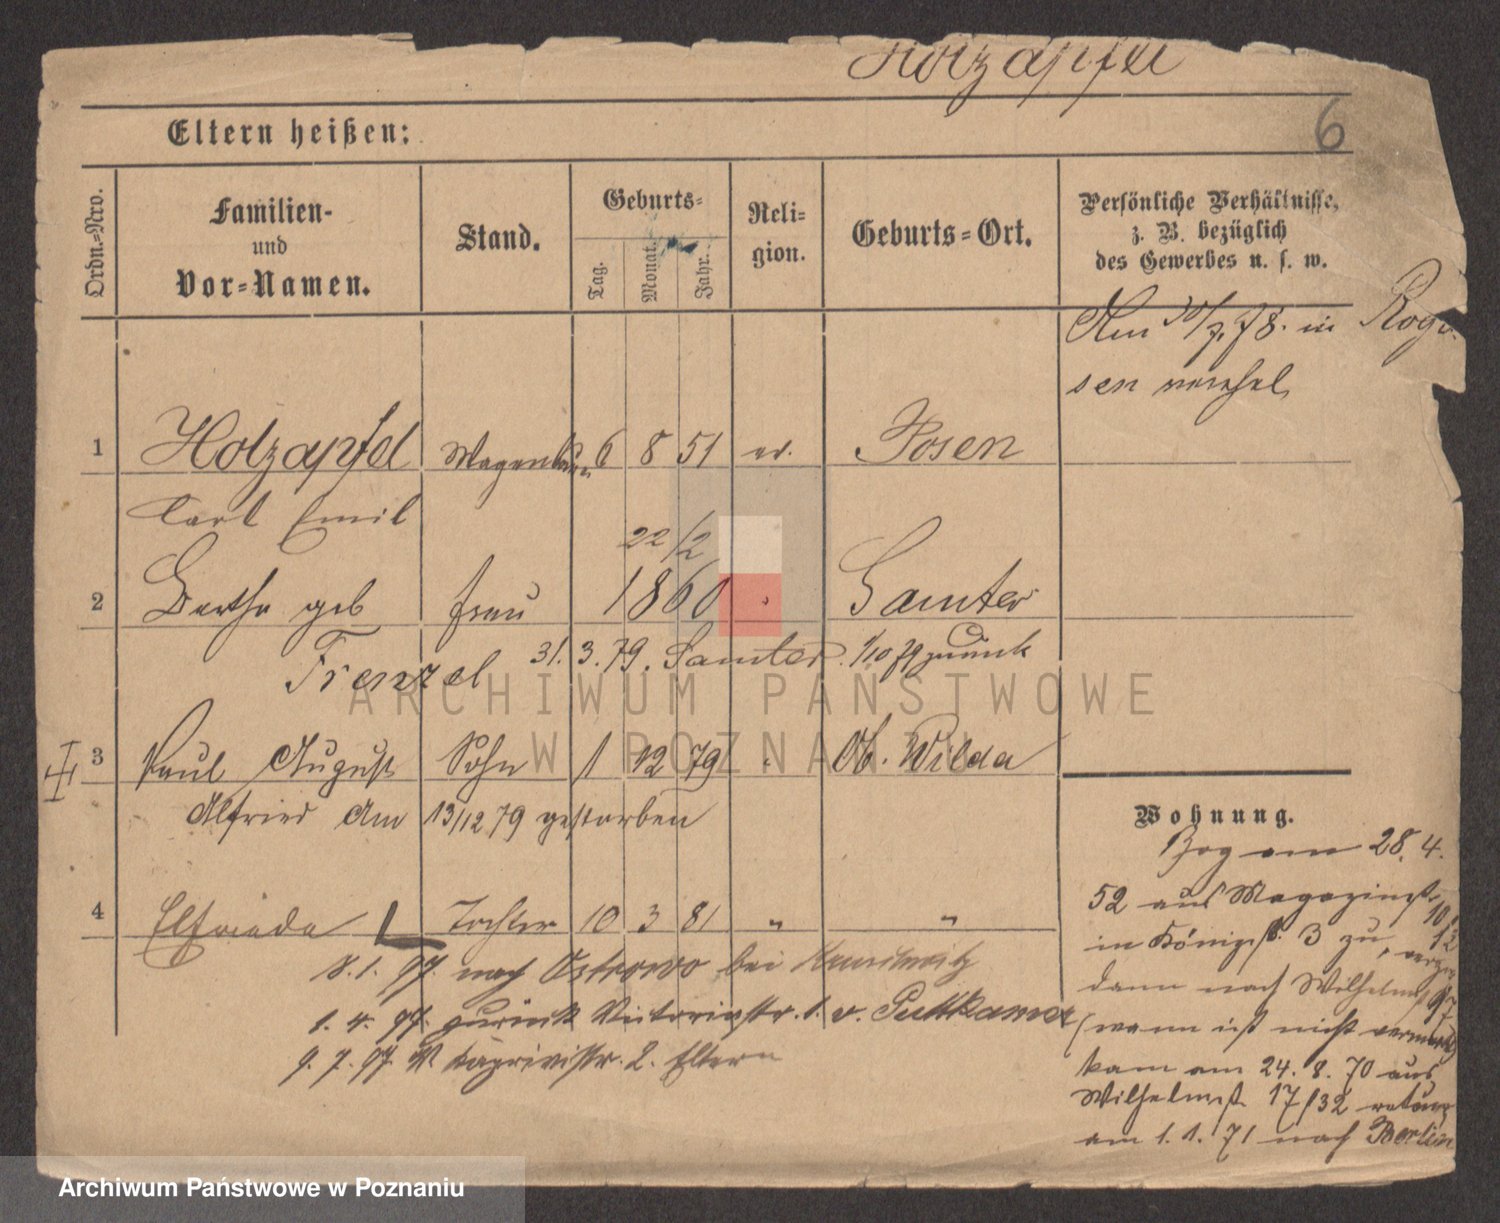 Holzapfel
6
Eltern heißen:
Ordn.-Nro.
Familien-
und
Vor-Namen.
Stand.
Geburts-
Tag.
Monat.
Jahr.
Reli-
gion.
Geburts-Ort.
Persönliche Verhältnisse,
z. B. bezüglich
des Gewerbes u. s. w.
Am 30/7.78. in Rogo-
sen verehel.
1 Holzapfel 6 8 51 ev. Posen
Carl Emil
22/2
2 Bertha geb Frau 1860 Samter
Frenzel 31. 3. 79. Samter. 1/10 79 zurück
3 Paul August Sohn 1 12 79 Ob. Wilda
Alfried Am 13/12 79 gestorben
4 Elfriede Tochter 10 3 81 " "
8. 1. 97. nach Ostrowo bei
1. 4. 97. zurück Victoriastr. 1. v. Puttkamer
9. 7. 97. Caprivistr. 2. Eltern
Wohnung.
Zog am 28. 4.
52 aus Magazinst.
in Königsst. 3 zu,
dann nach Wilhelmst
(wann ist nicht vermerkt)
kam am 24. 8. 70 aus
Wilhelmst 17/32 retour
am 1. 1. 71 nach Berlin
ARCHIWUM PAŃSTWOWE
W POZNANIU
Archiwum Państwowe w Poznaniu